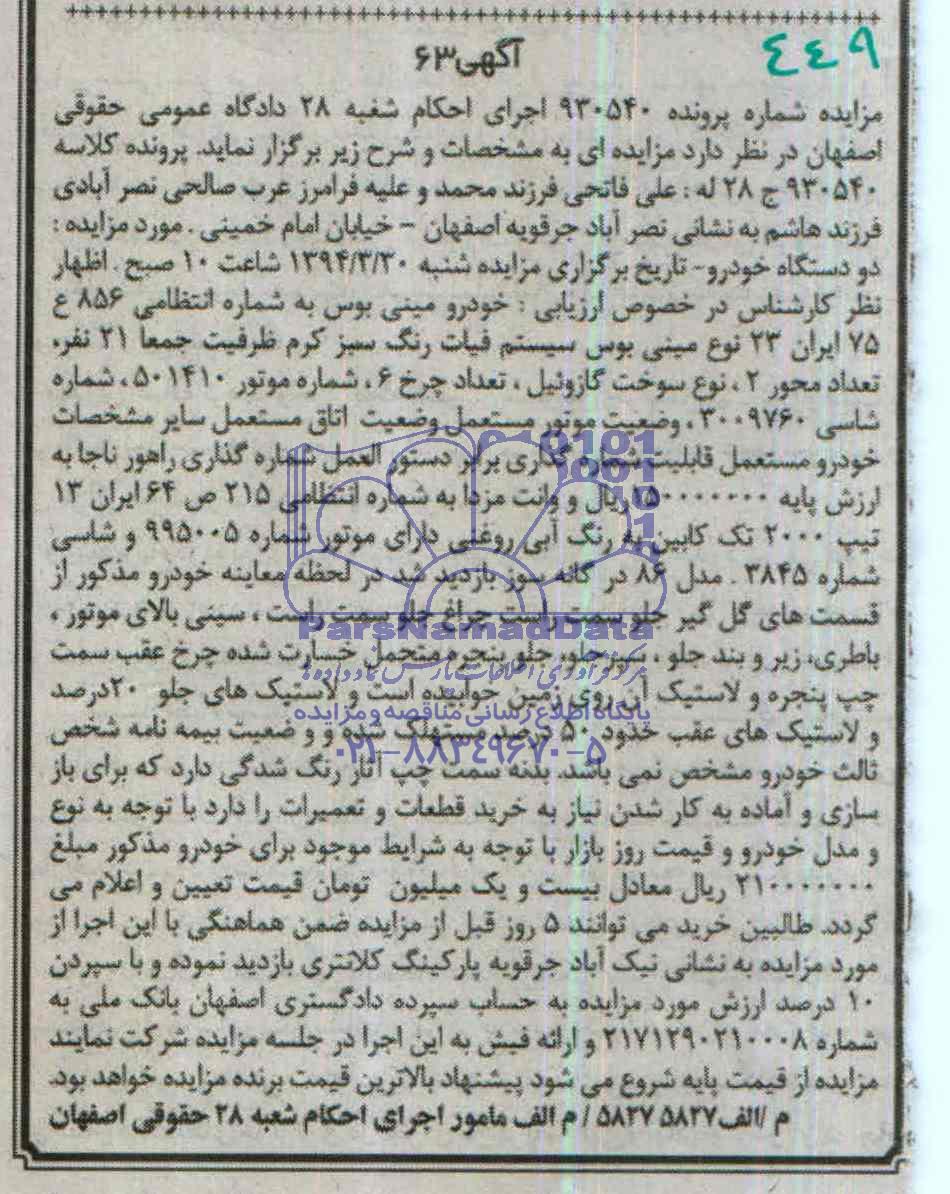 ٤٤٩
آگهی۶۳
مزایده شماره پرونده ۹۳۰۵۴۰ اجرای احکام شعبه ۲۸ دادگاه عمومی حقوقی
اصفهان در نظر دارد مزایده ای به مشخصات و شرح زیر برگزار نماید. پرونده کلاسه
۹۳۰۵۴۰ ج ۲۸ له : علی فاتحی فرزند محمد و علیه فرامرز عرب صالحی نصر آبادی
فرزند هاشم به نشانی نصر آباد جرقویه اصفهان – خیابان امام خمینی . مورد مزایده :
دو دستگاه خودرو- تاریخ برگزاری مزایده شنبه ۱۳۹۴/۳/۳۰ شاعت ۱۰ صبح . اظهار
نظر کارشناس در خصوص ارزیابی : خودرو مینی بوس به شماره انتظامی ۸۵۶ ع
۷۵ ایران ۲۳ نوع مینی بوس سیستم فیات رنگ سبز کرم ظرفیت جمعا ۲۱ نفر،
تعداد محور ۲ ، نوع سوخت گازوئیل ، تعداد چرخ ۶ ، شماره موتور ۵۰۱۴۱۰ ، شماره
شاسی ۳۰۰۹۷۶۰ ، وضعیت موتور مستعمل وضعیت اتاق مستعمل سایر مشخصات
خودرو مستعمل قابلیت شماره گذاری برابر دستور العمل شماره گذاری راهور ناجا به
ارزش پایه ریال و وانت مزدا به شماره انتظامی ۲۱۵ ص ۶۴ ایران ۱۳
تیپ ۲۰۰۰ تک کابین به رنگ آبی روغنی دارای موتور شماره ۹۹۵۰۰۵ و شاسی
شماره ۳۸۴۵ . مدل ۸۶ در گانه سوز بازدید شد در لحظه معاینه خودرو مذکور از
قسمت های گل گیر جلو سمت راست چراغ جلو سمت راست ، سینی بالای موتور ،
باطری، زیر و بند جلو ، سپر جلو، جلو پنجره متحمل خسارت شده چرخ عقب سمت
چپ پنجره و لاستیک آن روی زمین خوابیده است و لاستیک های جلو ۲۰درصد
و لاستیک های عقب حدود ۵۰ درصد مستهلک شده و و ضعیت بیمه نامه شخص
ثالث خودرو مشخص نمی باشد. بدنه سمت چپ آثار رنگ شدگی دارد که برای باز
سازی و آماده به کار شدن نیاز به خرید قطعات و تعمیرات را دارد با توجه به نوع
و مدل خودرو و قیمت روز بازار با توجه به شرایط موجود برای خودرو مذکور مبلغ
۲۱۰۰۰۰۰۰۰ ریال معادل بیست و یک میلیون تومان قیمت تعیین و اعلام می
گردد. طالبین خرید می توانند ۵ روز قبل از مزایده ضمن هماهنگی با این اجرا از
مورد مزایده به نشانی نیک آباد جرقویه پارکینگ کلانتری بازدید نموده و با سپردن
۱۰ درصد ارزش مورد مزایده به حساب سپرده دادگستری اصفهان بانک ملی به
شماره ۲۱۷۱۲۹۰۲۱۰۰۰۸ و ارائه فیش به این اجرا در جلسه مزایده شرکت نمایند
مزایده از قیمت پایه شروع می شود پیشنهاد بالاترین قیمت برنده مزایده خواهد بود.
م /الف۵۸۲۷ ۵۸۲۷ / م الف مامور اجرای احکام شعبه ۲۸ حقوقی اصفهان
ParsNamadData
مرکز فرآوری اطلاعات پارس نماد داده ها
پایگاه اطلاع رسانی مناقصه و مزایده
۰۲۱-۸۸۳۴۹۶۷۰-۵